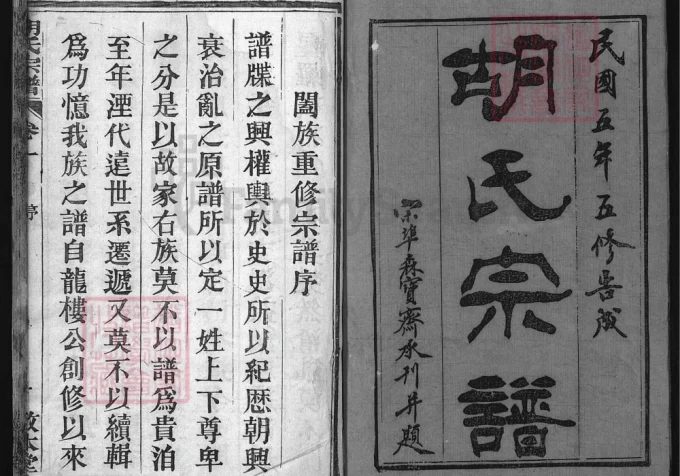 民國五年五修告成
胡氏宗譜
森寶齋水刊并題
闔族重修宗譜序
譜牒之興權輿於史史所以紀歷朝興
衰治亂之原譜所以定一姓上下尊卑
之分是以故家右族莫不以譜爲貴洎
至年湮代遠世系遷遞又莫不以續輯
爲功憶我族之譜自龍樓公創修以來
胡氏宗譜 卷一 序 一 敦本堂